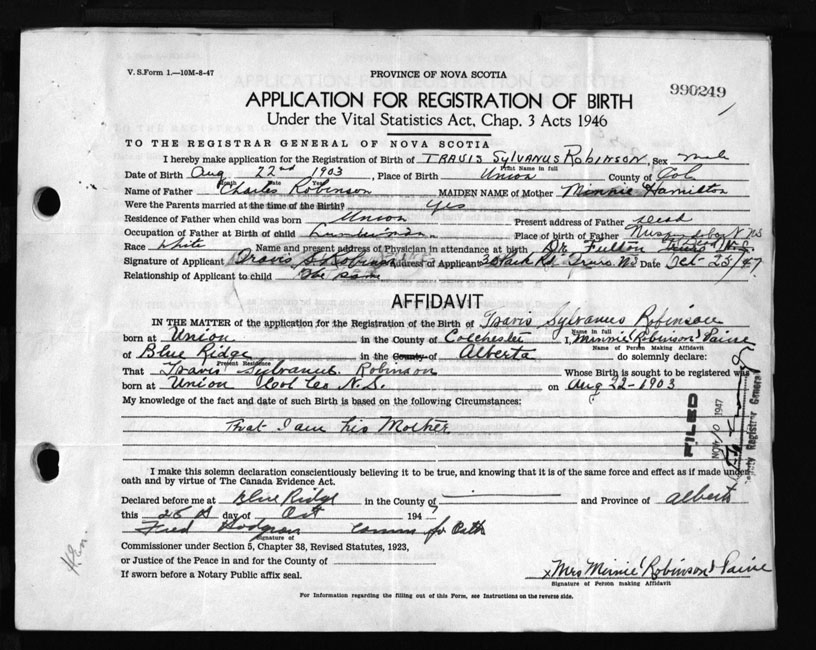 V. S. Form 1.—10M-8-47
PROVINCE OF NOVA SCOTIA
990249
APPLICATION FOR REGISTRATION OF BIRTH
Under the Vital Statistics Act, Chap. 3 Acts 1946
TO THE REGISTRAR GENERAL OF NOVA SCOTIA
I hereby make application for the Registration of Birth of TRAVIS SYLVANUS ROBINSON, Sex male
Print Name in full
Date of Birth Aug 22nd 1903, Place of Birth Union County of Col.
Month Date Year
Name of Father Charles Robinson MAIDEN NAME of Mother Minnie Hamilton
Were the Parents married at the time of the Birth? Yes
Residence of Father when child was born Union Present address of Father Dead
Occupation of Father at Birth of child Lumberman Place of birth of Father N.S.
Race White Name and present address of Physician in attendance at birth Dr. Fulton Truro N.S.
Signature of Applicant Travis S. Robinson Address of Applicant 3 Park Rd. Truro NS Date Oct-25/47
Relationship of Applicant to child The same
AFFIDAVIT
IN THE MATTER of the application for the Registration of the Birth of Travis Sylvanus Robinson
Name in full
born at Union in the County of Colchester I, Minnie (Robinson) Paine
Name of Person Making Affidavit
of Blue Ridge in the County of Alberta do solemnly declare:
Present Residence
That Travis Sylvanus Robinson Whose Birth is sought to be registered was
born at Union Col Co N.S. on Aug 22-1903
My knowledge of the fact and date of such Birth is based on the following Circumstances:
That I am his Mother
FILED
NOV 10 1947
Deputy Registrar General
I make this solemn declaration conscientiously believing it to be true, and knowing that it is of the same force and effect as if made under
oath and by virtue of The Canada Evidence Act.
Declared before me at Blue Ridge in the County of and Province of Alberta
this 28 day of Oct 1947
Fred Hodgson Comms for Oath
Signature of
Commissioner under Section 5, Chapter 38, Revised Statutes, 1923,
or Justice of the Peace in and for the County of
If sworn before a Notary Public affix seal.
x Mrs Minnie (Robinson) Paine
Signature of Person making Affidavit
For Information regarding the filling out of this Form, see Instructions on the reverse side.